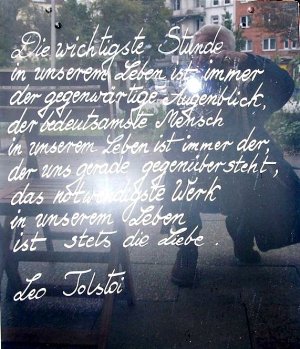 Die wichtigste Stunde
in unserem Leben ist immer
der gegenwärtige Augenblick,
der bedeutsamste Mensch
in unserem Leben ist immer der,
der uns gerade gegenübersteht,
das notwendigste Werk
in unserem Leben
ist stets die Liebe.
Leo Tolstoi